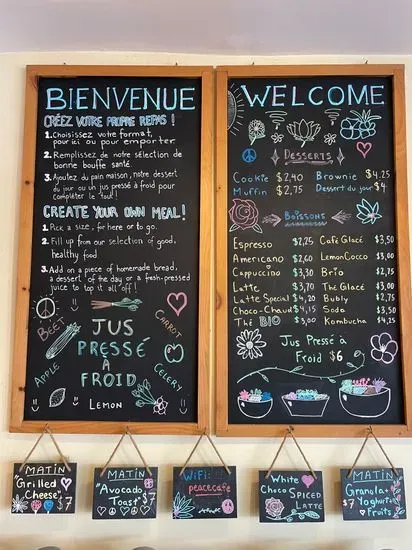 BIENVENUE
CRÉEZ VOTRE PROPRE REPAS !
1. Choisissez votre format,
pour ici ou pour emporter
2. Remplissez de notre sélection de
bonne bouffe santé
3. Ajoutez du pain maison, notre dessert
du jour ou un jus pressé à froid pour
compléter le tout!
CREATE YOUR OWN MEAL!
1. Pick a size, for here or to go.
2. Fill up from our selection of good,
healthy food
3. Add on a piece of homemade bread,
a dessert of the day or a fresh-pressed
juice to top it all off!
BEET
CARROT
JUS
PRESSÉ
À
FROID
APPLE
CELERY
LEMON
WELCOME
DESSERTS
Cookie $2,40 Brownie $4,25
Muffin $2,75 Dessert du jour $4
Boissons
Espresso $2,25 Café Glacé $3,50
Americano $2,60 LemonCoco $3,00
Cappuccino $3,30 Brio $2,75
Latte $3,70 Thé Glacé $3,00
Latte Special $4,20 Bubly $2,75
Choco-Chaud $4,15 Soda $3,50
Thé BIO $3,00 Kombucha $4,25
Jus Pressé à
Froid $6
MATIN
"Grilled
Cheese"
$7
MATIN
"Avocado
Toast"
$7
WiFi:
peacecafe
White
Choco
SPICED
Latte
MATIN
Granola+ $7
Yogurt+
Fruits